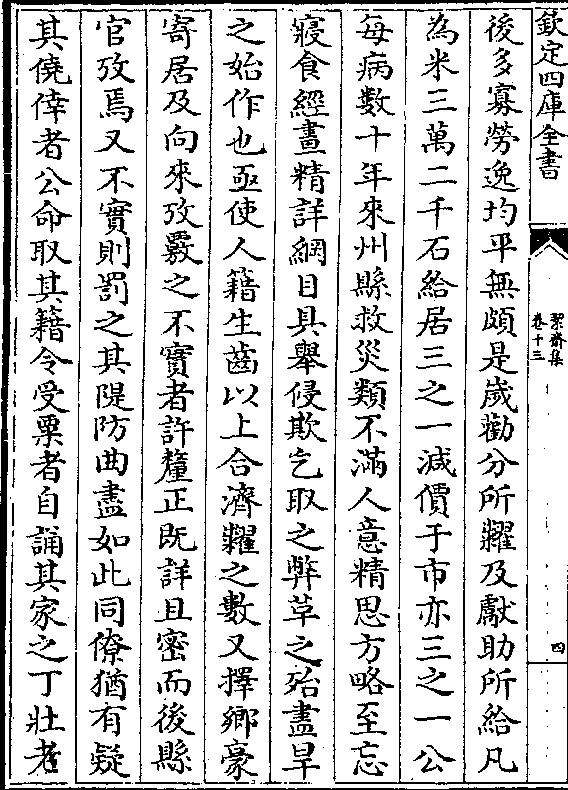 欽定四庫全書
絜齋集
卷十三
四
後多寡勞逸均平無頗是歲勸分所糶及獻助所給凡
為米三萬二千石給居三之一減價于市亦三之一公
每病數十年來州縣救災類不滿人意精思方略至忘
寢食經畫精詳綱目具舉侵欺乞取之弊革之殆盡旱
之始作也亟使人籍生齒以上合濟糶之數又擇鄉豪
寄居及向來攷覈之不實者許釐正既詳且密而後縣
官攷焉又不實則罰之其隄防曲盡如此同僚猶有疑
其僥倖者公命取其籍令受粟者自誦其家之丁壯老